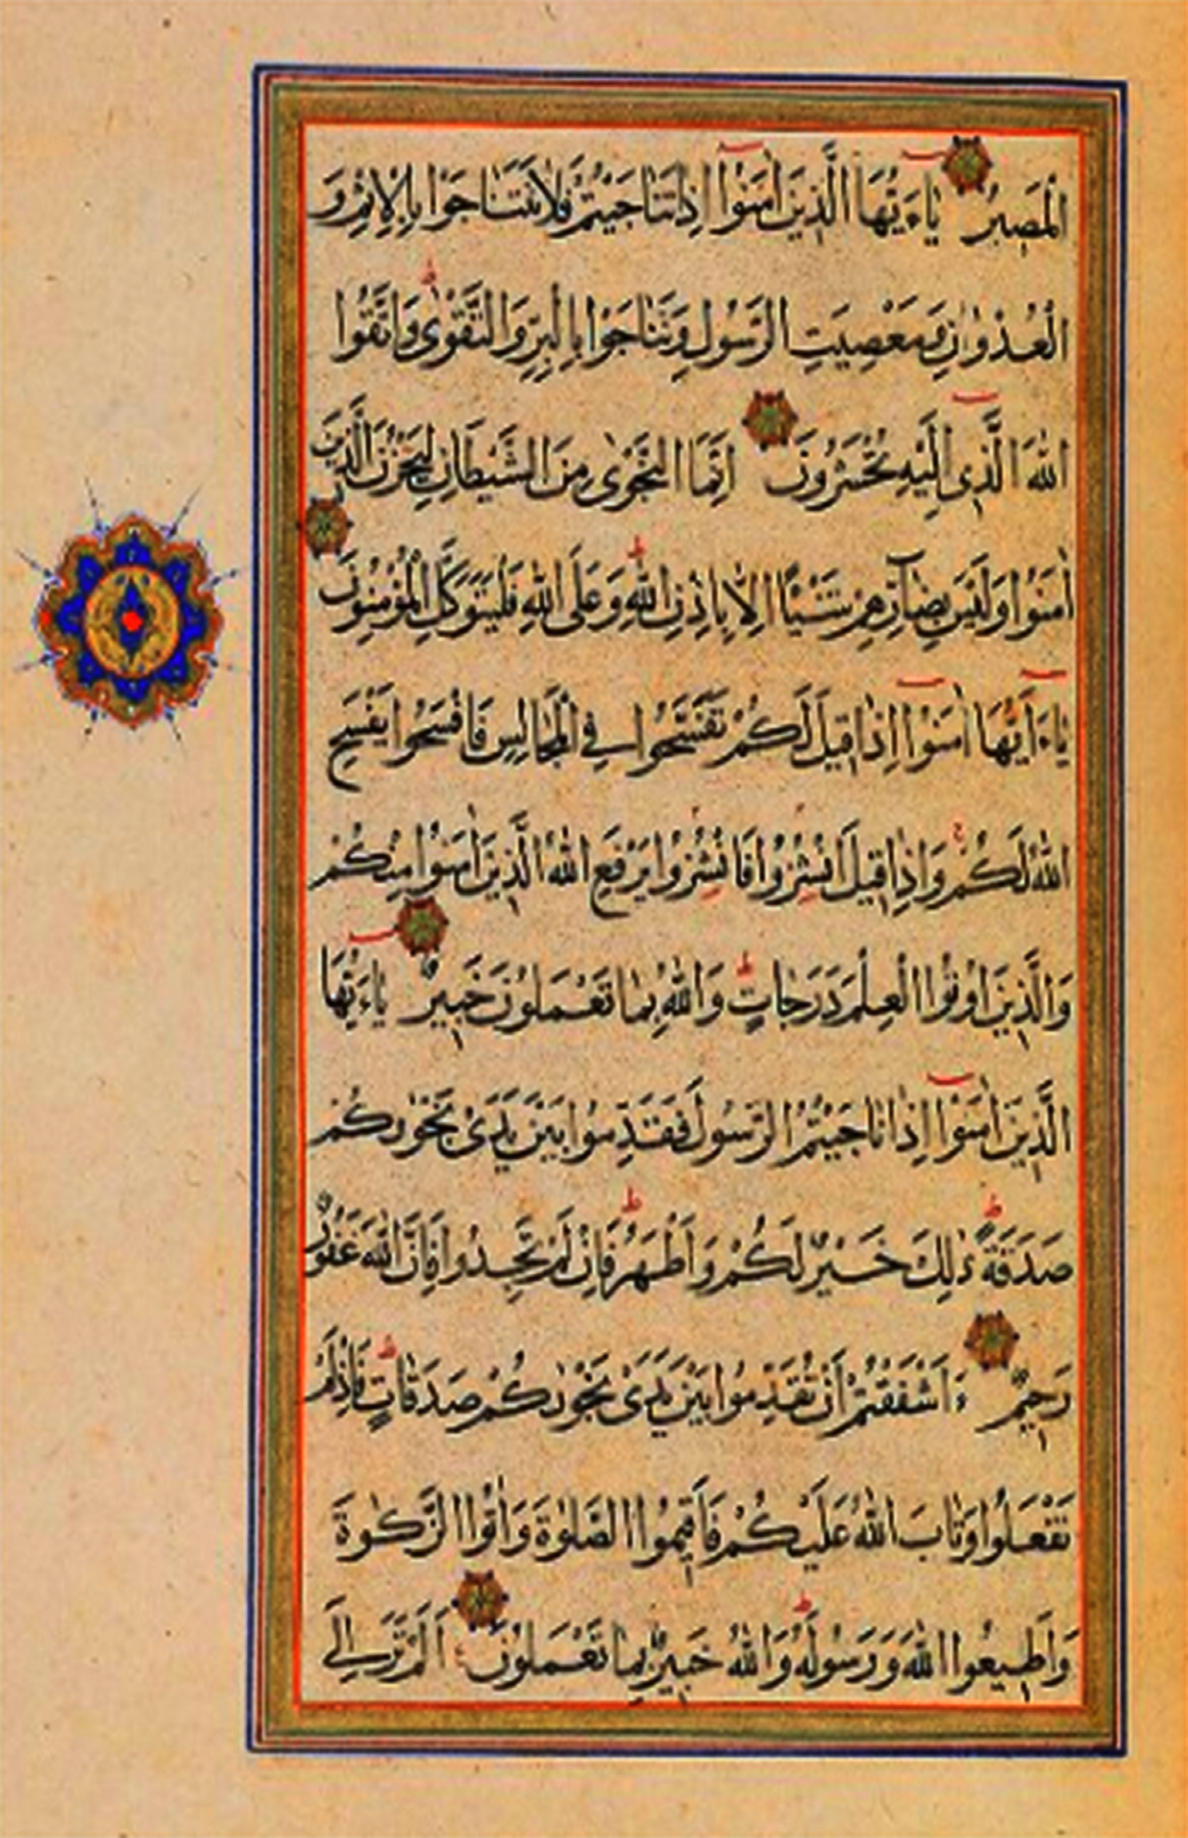 الْمَصِيرُ يٰاءَيُّهَا الَّذِينَ اٰمَنُوا اِذٰا تَنٰاجَيْتُمْ فَلاٰ تَتَنٰاجَوْا بِالْاِثْمِ وَ
الْعُدْوٰانِ وَمَعْصِيَتِ الرَّسُولِ وَتَنٰاجَوْا بِالْبِرِّ وَالتَّقْوٰى وَاتَّقُوا
اللهَ الَّذِى اِلَيْهِ تُحْشَرُونَ اِنَّمَا النَّجْوٰى مِنَ الشَّيْطٰانِ لِيَحْزُنَ الَّذِينَ
اٰمَنُوا وَلَيْسَ بِضٰآرِّهِمْ شَيْئًا اِلّٰا بِاِذْنِ اللهِ وَعَلَى اللهِ فَلْيَتَوَكَّلِ الْمُؤْمِنُونَ
يٰاءَايُّهَا اٰمَنُوا اِذٰا قِيلَ لَكُمْ تَفَسَّحُوا فِي الْمَجٰالِسِ فَافْسَحُوا يَفْسَحِ
اللهُ لَكُمْ وَاِذٰا قِيلَ انْشُزُوا فَانْشُزُوا يَرْفَعِ اللهُ الَّذِينَ اٰمَنُوا مِنْكُمْ
وَالَّذِينَ اُوتُوا الْعِلْمَ دَرَجٰاتٍ وَاللهُ بِمٰا تَعْمَلُونَ خَبِيرٌ يٰاءَيُّهَا
الَّذِينَ اٰمَنُوا اِذٰا نٰاجَيْتُمُ الرَّسُولَ فَقَدِّمُوا بَيْنَ يَدَىْ نَجْوٰىكُمْ
صَدَقَةً ذٰلِكَ خَيْرٌ لَكُمْ وَاَطْهَرُ فَاِنْ لَمْ تَجِدُوا فَاِنَّ اللهَ غَفُورٌ
رَحِيمٌ ءَاَشْفَقْتُمْ اَنْ تُقَدِّمُوا بَيْنَ يَدَىْ نَجْوٰىكُمْ صَدَقٰاتٍ فَاِذْ لَمْ
تَفْعَلُوا وَتٰابَ اللهُ عَلَيْكُمْ فَاَقِيمُوا الصَّلٰوةَ وَاٰتُوا الزَّكٰوةَ
وَاَطِيعُوا اللهَ وَرَسُولَهُ وَاللهُ خَبِيرٌ بِمٰا تَعْمَلُونَ اَلَمْ تَرَ اِلَى